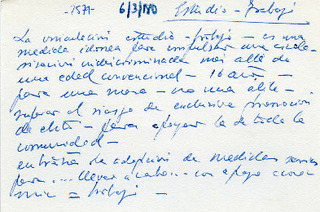 -7571- 6/3/1980 Estudio - trabajo
La vinculación estudio - trabajo - es una
medida idonea para impulsar una escola-
rización indiscriminada más allá de
una edad convencional - 16 años -
para una mera - no una élite -
superar el riesgo de exclusiva promoción
de élites - para apoyar la de toda la
comunidad -
entraña la adopción de medidas
para ... llevar a cabo - con apoyo
trabajo -